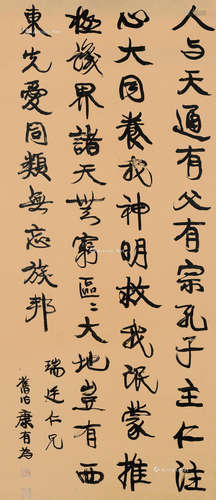 人与天通有父有宗孔子主仁注
心大同養我神明救我氓蒙推
極諸界諸天無窮區區大地豈有西
東先愛同類無忘族邦
瑞廷仁兄
康有為